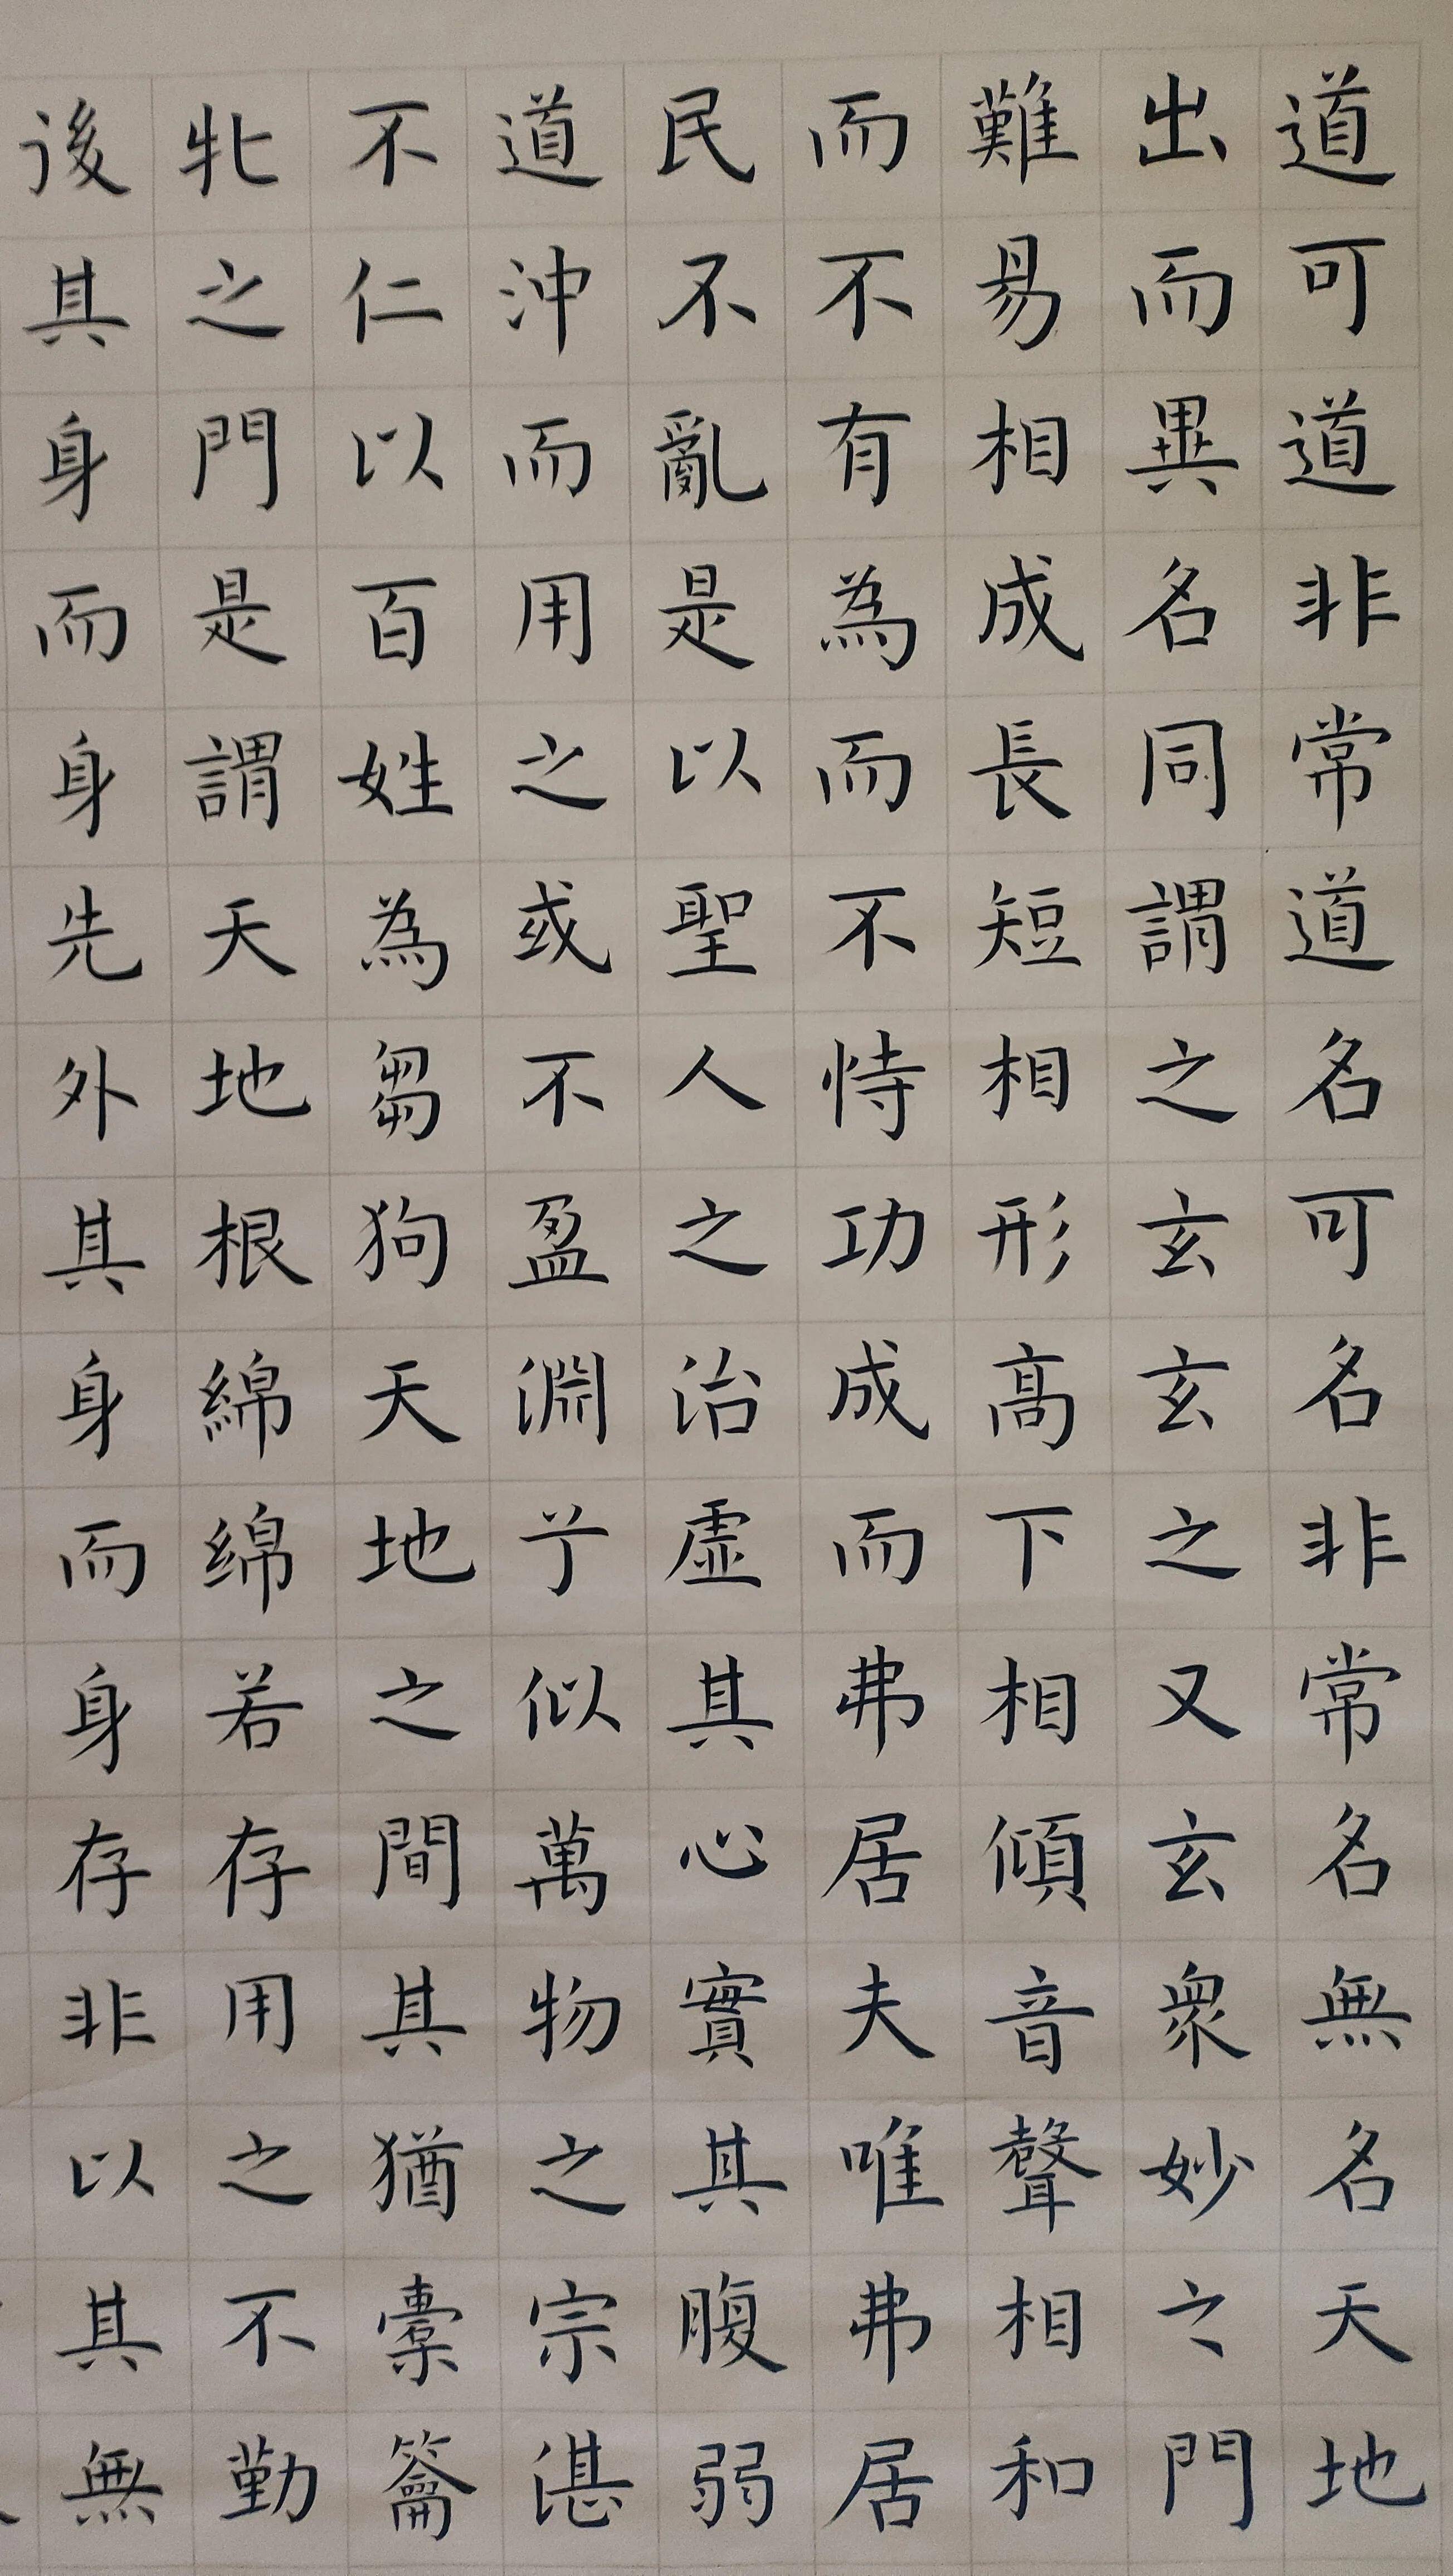 道可道非常道名可名非常名無名天地
出而異名同謂之玄玄之又玄衆妙之門
難易相成長短相形高下相傾音聲相和
而不有為而不恃功成而弗居夫唯弗居
民不亂是以聖人之治虛其心實其腹弱
道沖而用之或不盈淵兮似萬物之宗湛
不仁以百姓為芻狗天地之間其猶橐籥
牝之門是謂天地根綿绵若存用之不勤
後其身而身先外其身而身存非以其無